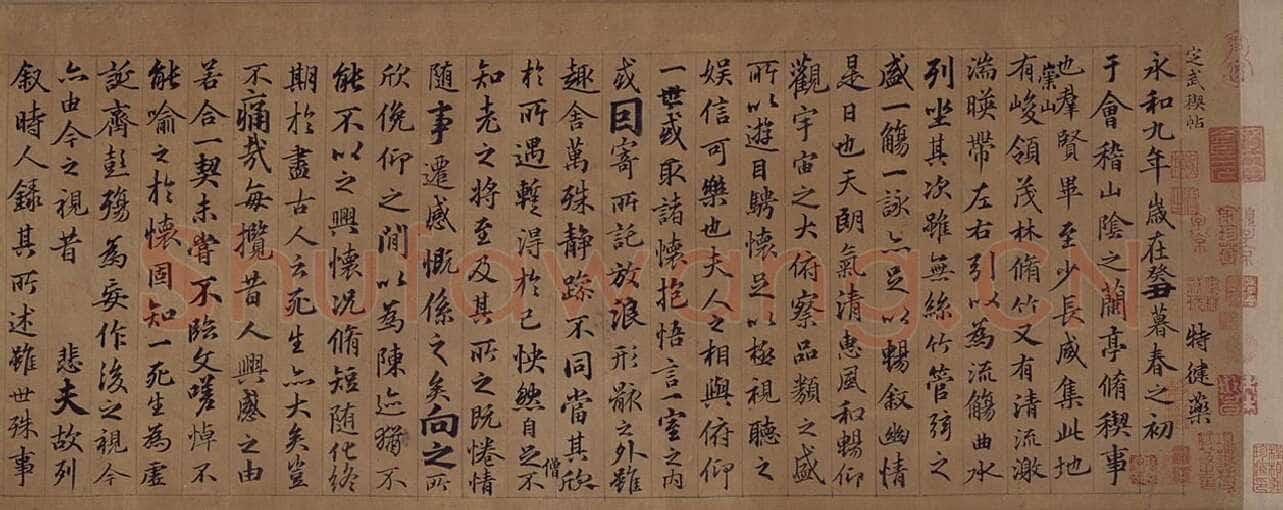 定武禊帖
特健藥
永和九年歲在癸丑暮春之初
于會稽山陰之蘭亭脩稧事
也羣賢畢至少長咸集此地
有崇山峻領茂林脩竹又有清流激
湍暎帶左右引以為流觴曲水
列坐其次雖無絲竹管弦之
盛一觴一詠亦足以暢敘幽情
是日也天朗氣清惠風和暢仰
觀宇宙之大俯察品類之盛
所以遊目騁懷足以極視聽之
娱信可樂也夫人之相與俯仰
一世或取諸懷抱悟言一室之內
或因寄所託放浪形骸之外雖
趣舍萬殊静躁不同當其欣
於所遇暫得於己怏然自足不
僧
知老之將至及其所之既惓情
随事遷感慨係之矣向之所
欣俛仰之閒以為陳迹猶不
能不以之興懷況脩短随化終
期於盡古人云死生亦大矣豈
不痛哉每攬昔人興感之由
若合一契未嘗不臨文嗟悼不
能喻之於懷固知一死生為虛
誕齊彭殤為妄作後之視今
亦由今之視昔 悲夫故列
叙時人錄其所述雖世殊事
Shufawang.CN